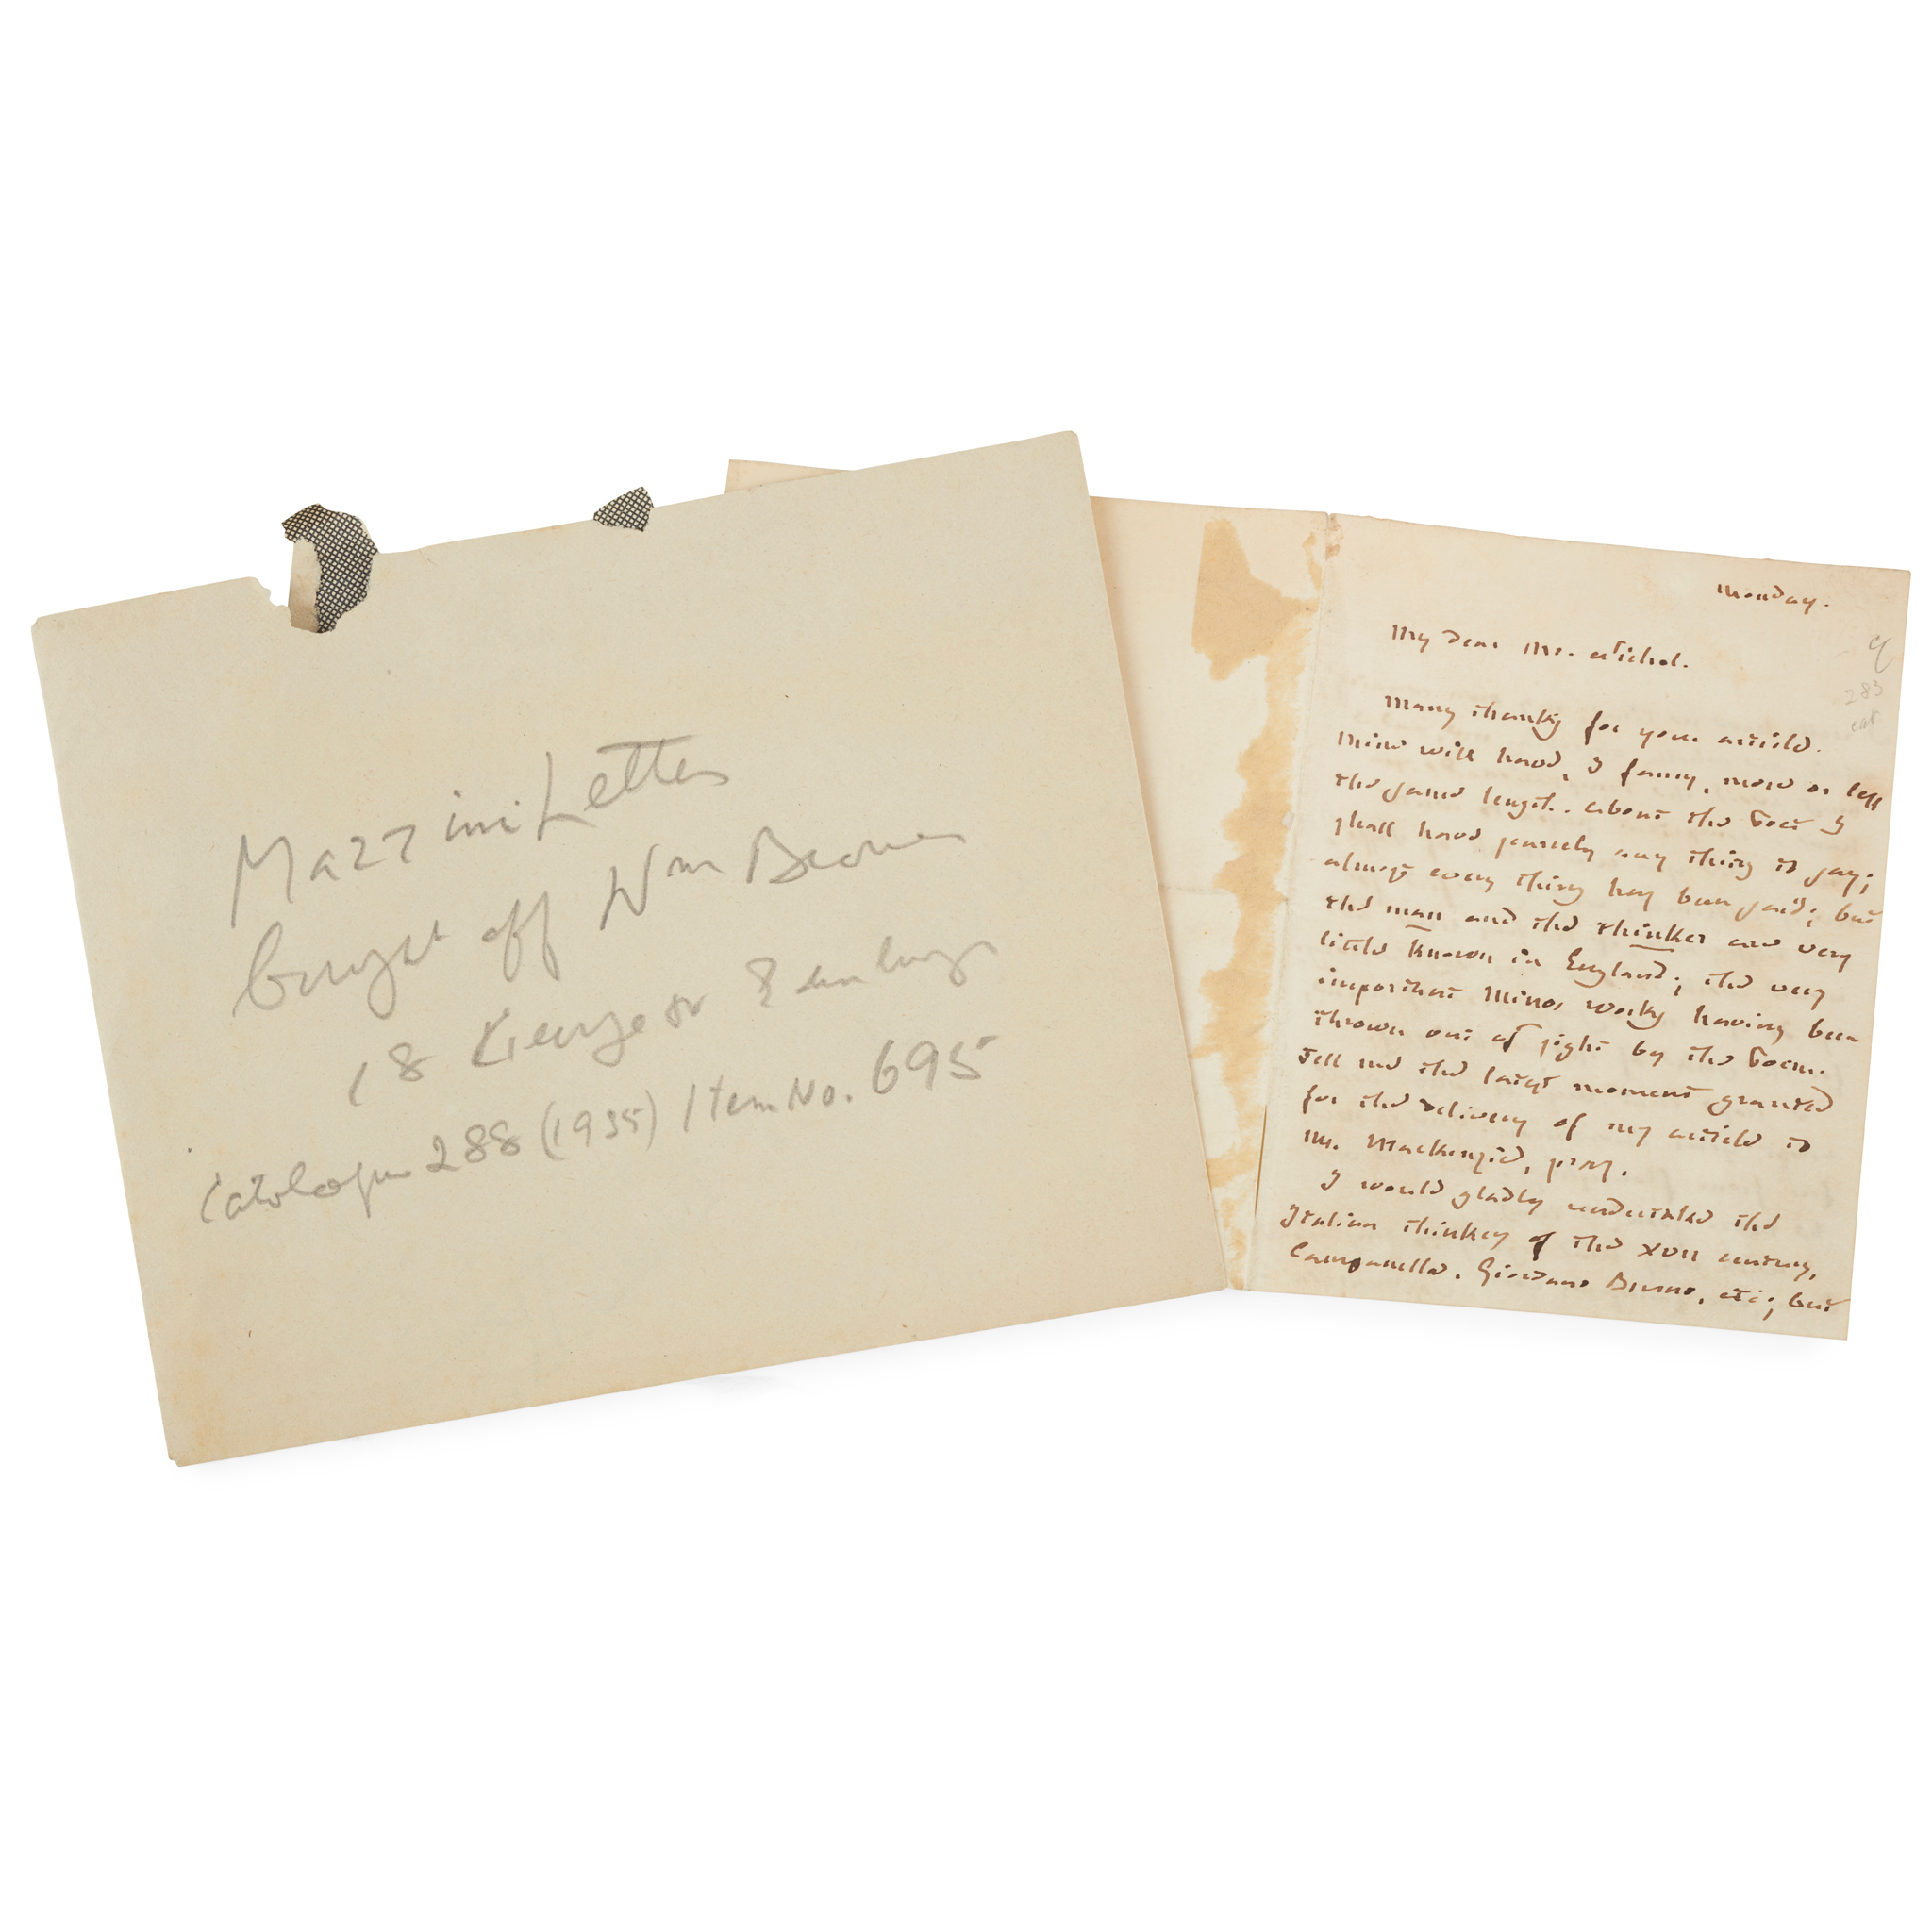 Mazzini Letter
bought off Wm Brown
18 George St Edinburgh
Catalogue 288 (1935) Item No. 695
Monday.
My dear Mr. Nichol.
283
cat
Many thanks for your article.
Mine will have, I fancy, more or less
the same length. About the Poet I
shall have scarcely any thing to say;
almost every thing has been said; but
the man and the thinker are very
little known in England; the very
important Minor works having been
thrown out of sight by the Poem.
Tell me the latest moment granted
for the delivery of my article to
Mr. Mackenzie, pray.
I would gladly undertake the
Italian thinkers of the XVII century,
Campanella, Giordano Bruno, etc; but